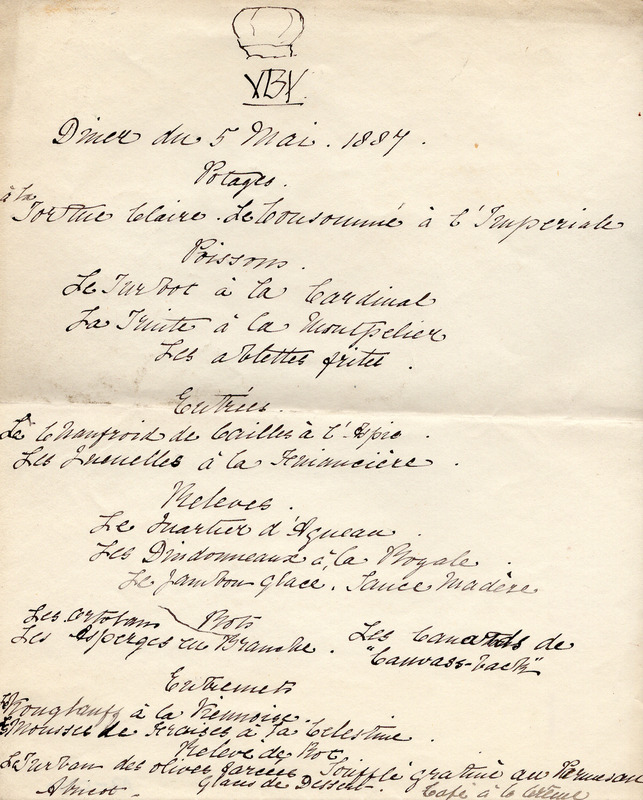 VRI
Diner du 5 Mai. 1887.
Potages.
à la
Tortue Claire. Le Consommé à l'Imperiale
Poissons.
Le Turbot à la Cardinal
La Truite à la Montpelier
Les ablettes frites.
Entrées.
Le Chaufroid de Cailles à l'Aspic.
Les Quenelles à la Financière.
Releves.
Le Quartier d'Agneau.
Les Dindonneaux à la Royale.
Le Jambon glace. Sauce Madère
Les ortolans Rots
Les Asperges en Branche. Les Canards de
"Canvass-back"
Entremets
à la Viennoise.
Mousses de fraises à la Celestine.
Releve de Rot
Le Turban des olives farcies Soufflé gratiné au Parmesan
Glaces de Dessert.
Abricot. Café à la Crême